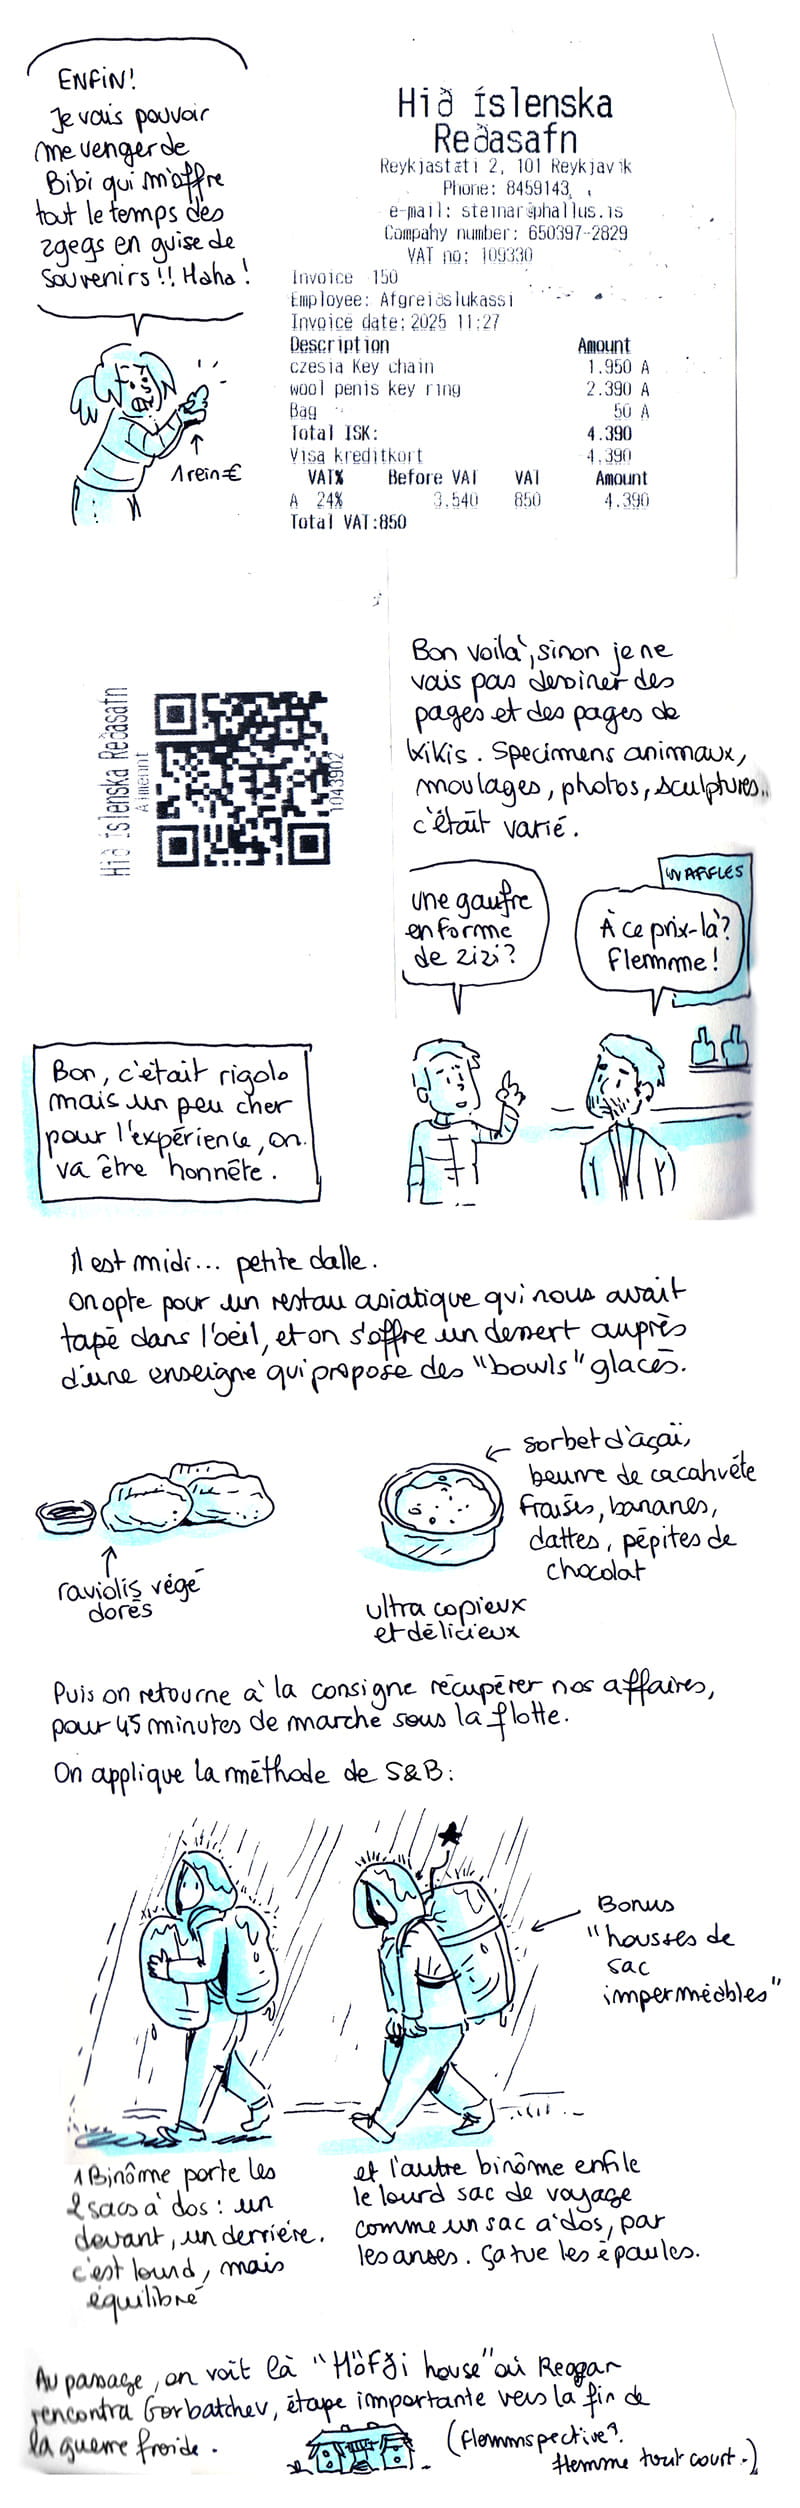 ENFIN!
Je vais pouvoir
me venger de
Bibi qui m'offre
tout le temps des
zgegs en guise de
souvenirs!! Haha!
1 rein=€
Hið íslenska
Reðasafn
Reykjastæti 2, 101 Reykjavik
Phone: 8459143
e-mail: steinar@phallus.is
Company number: 650397-2829
VAT no: 109330
Invoice 150
Employee: Afgreiðslukassi
Invoice date: 2025 11:27
Description Amount
czesia Key chain 1.950 A
wool penis key ring 2.390 A
Bag 50 A
Total ISK: 4.390
Visa kreditkort -4.390
VAT% Before VAT VAT Amount
A 24% 3.540 850 4.390
Total VAT:850
Hið íslenska Reðasafn
Almennt
1043902
Bon voilà, sinon je ne
vais pas dessiner des
pages et des pages de
kikis. Specimens animaux,
moulages, photos, sculptures..
c'était varié.
WAFFLES
une gaufre
en forme
de zizi?
À ce prix-là?
Flemme!
Bon, c'était rigolo
mais un peu cher
pour l'expérience, on
va être honnête.
Il est midi... petite dalle.
On opte pour un restau asiatique qui nous avait
tapé dans l'oeil, et on s'offre un dessert auprès
d'une enseigne qui propose des "bowls" glacés.
raviolis végé
dorés
sorbet d'açaï,
beurre de cacahuète
fraises, bananes,
dattes, pépites de
chocolat
ultra copieux
et délicieux
Puis on retourne à la consigne récupérer nos affaires,
pour 45 minutes de marche sous la flotte.
On applique la méthode de S&B:
Bonus
"housses de
sac
imperméables"
1 Binôme porte les
2 sacs à dos: un
devant, un derrière.
c'est lourd, mais
équilibré
et l'autre binôme enfile
le lourd sac de voyage
comme un sac à dos, par
les anses. Ça tue les épaules.
Au passage, on voit là "Höfði house" où Reagan
rencontra Gorbatchev, étape importante vers la fin de
la guerre froide.
(flemmspective?
flemme tout court.)